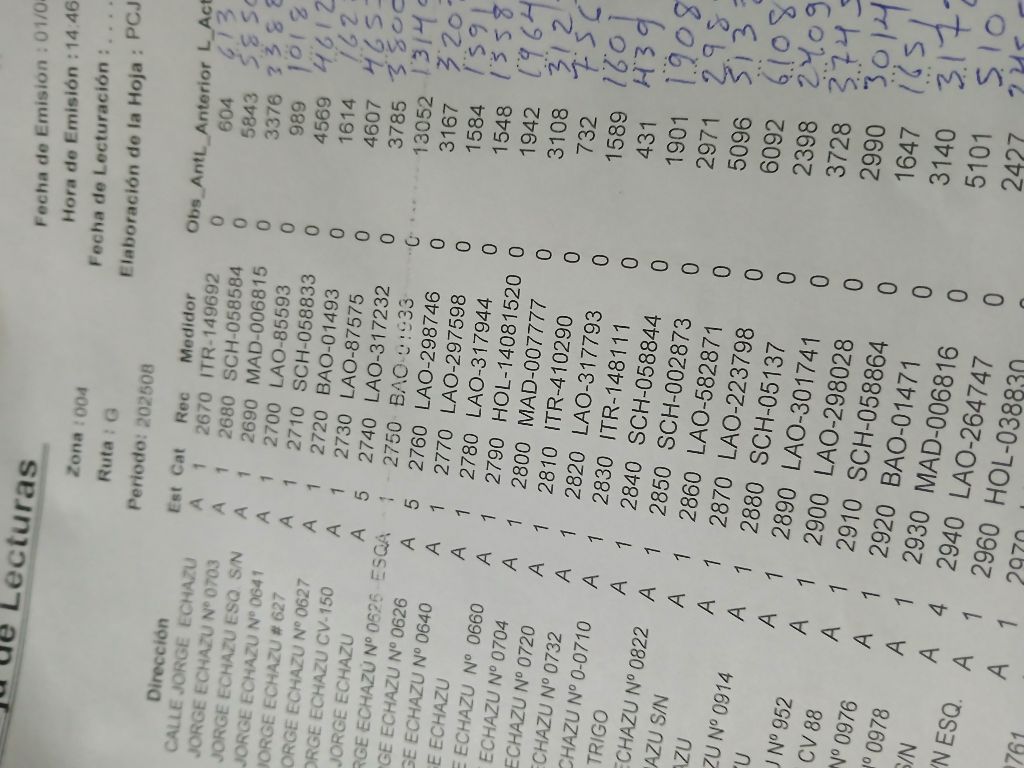 ja de Lecturas
Fecha de Emisión : 01/08
Zona : 004 Hora de Emisión : 14:46
Ruta : G Fecha de Lecturación : . . . .
Periodo: 202808 Elaboración de la Hoja : PCJ
Dirección Est Cat Rec Medidor Obs_Ant L_Anterior L_Act
CALLE JORGE ECHAZU A 1 2670 ITR-149692 0 604 613
JORGE ECHAZU Nº 0703 A 1 2680 SCH-058584 0 5843 5850
JORGE ECHAZU ESQ. S/N A 1 2690 MAD-006815 0 3376 3388
JORGE ECHAZU Nº 0641 A 1 2700 LAO-85593 0 989 1018
JORGE ECHAZU # 627 A 1 2710 SCH-058833 0 4569 4612
ORGE ECHAZU Nº 0627 A 1 2720 BAO-01493 0 1614
ORGE ECHAZU CV-150 A 1 2730 LAO-87575 0 4607
JORGE ECHAZU A 5 2740 LAO-317232 0 3785 3800
RGE ECHAZÚ Nº 0625 -ESQA 1 2750 BAO-01933 0 13052
RGE ECHAZU Nº 0626 A 5 2760 LAO-298746 0 3167
GE ECHAZU Nº 0640 A 1 2770 LAO-297598 0 1584 1591
E ECHAZU A 1 2780 LAO-317944 0 1548 1558
E ECHAZU Nº 0660 A 1 2790 HOL-14081520 0 1942 1964
ECHAZU Nº 0704 A 1 2800 MAD-007777 0 3108
ECHAZU Nº 0720 A 1 2810 ITR-410290 0 732 756
ECHAZU Nº 0732 A 1 2820 LAO-317793 0 1589 1601
CHAZU Nº 0-0710 A 1 2830 ITR-148111 0 431 439
TRIGO A 1 2840 SCH-058844 0 1901 1908
ECHAZU Nº 0822 A 1 2850 SCH-002873 0 2971
AZU S/N A 1 2860 LAO-582871 0 5096
AZU A 1 2870 LAO-223798 0 6092 6108
ZU Nº 0914 A 1 2880 SCH-05137 0 2398 2409
U A 1 2890 LAO-301741 0 3728 3745
U Nº 952 A 1 2900 LAO-298028 0 2990 3014
CV 88 A 1 2910 SCH-058864 0 1647 1651
Nº 0976 A 1 2920 BAO-01471 0 3140
Nº 0978 A 1 2930 MAD-006816 0 5101
S/N A 4 2940 LAO-264747 0 2427
/N ESQ. A 1 2960 HOL-038830
761 A 1 2970